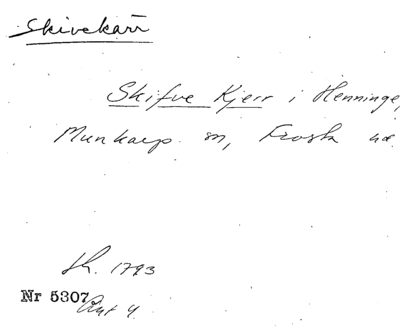 Skivekärr
Skifve Kjerr i Henninge,
Munkarp sn, Frosta hd
Sk. 1793
Nr 5307
Akt 4